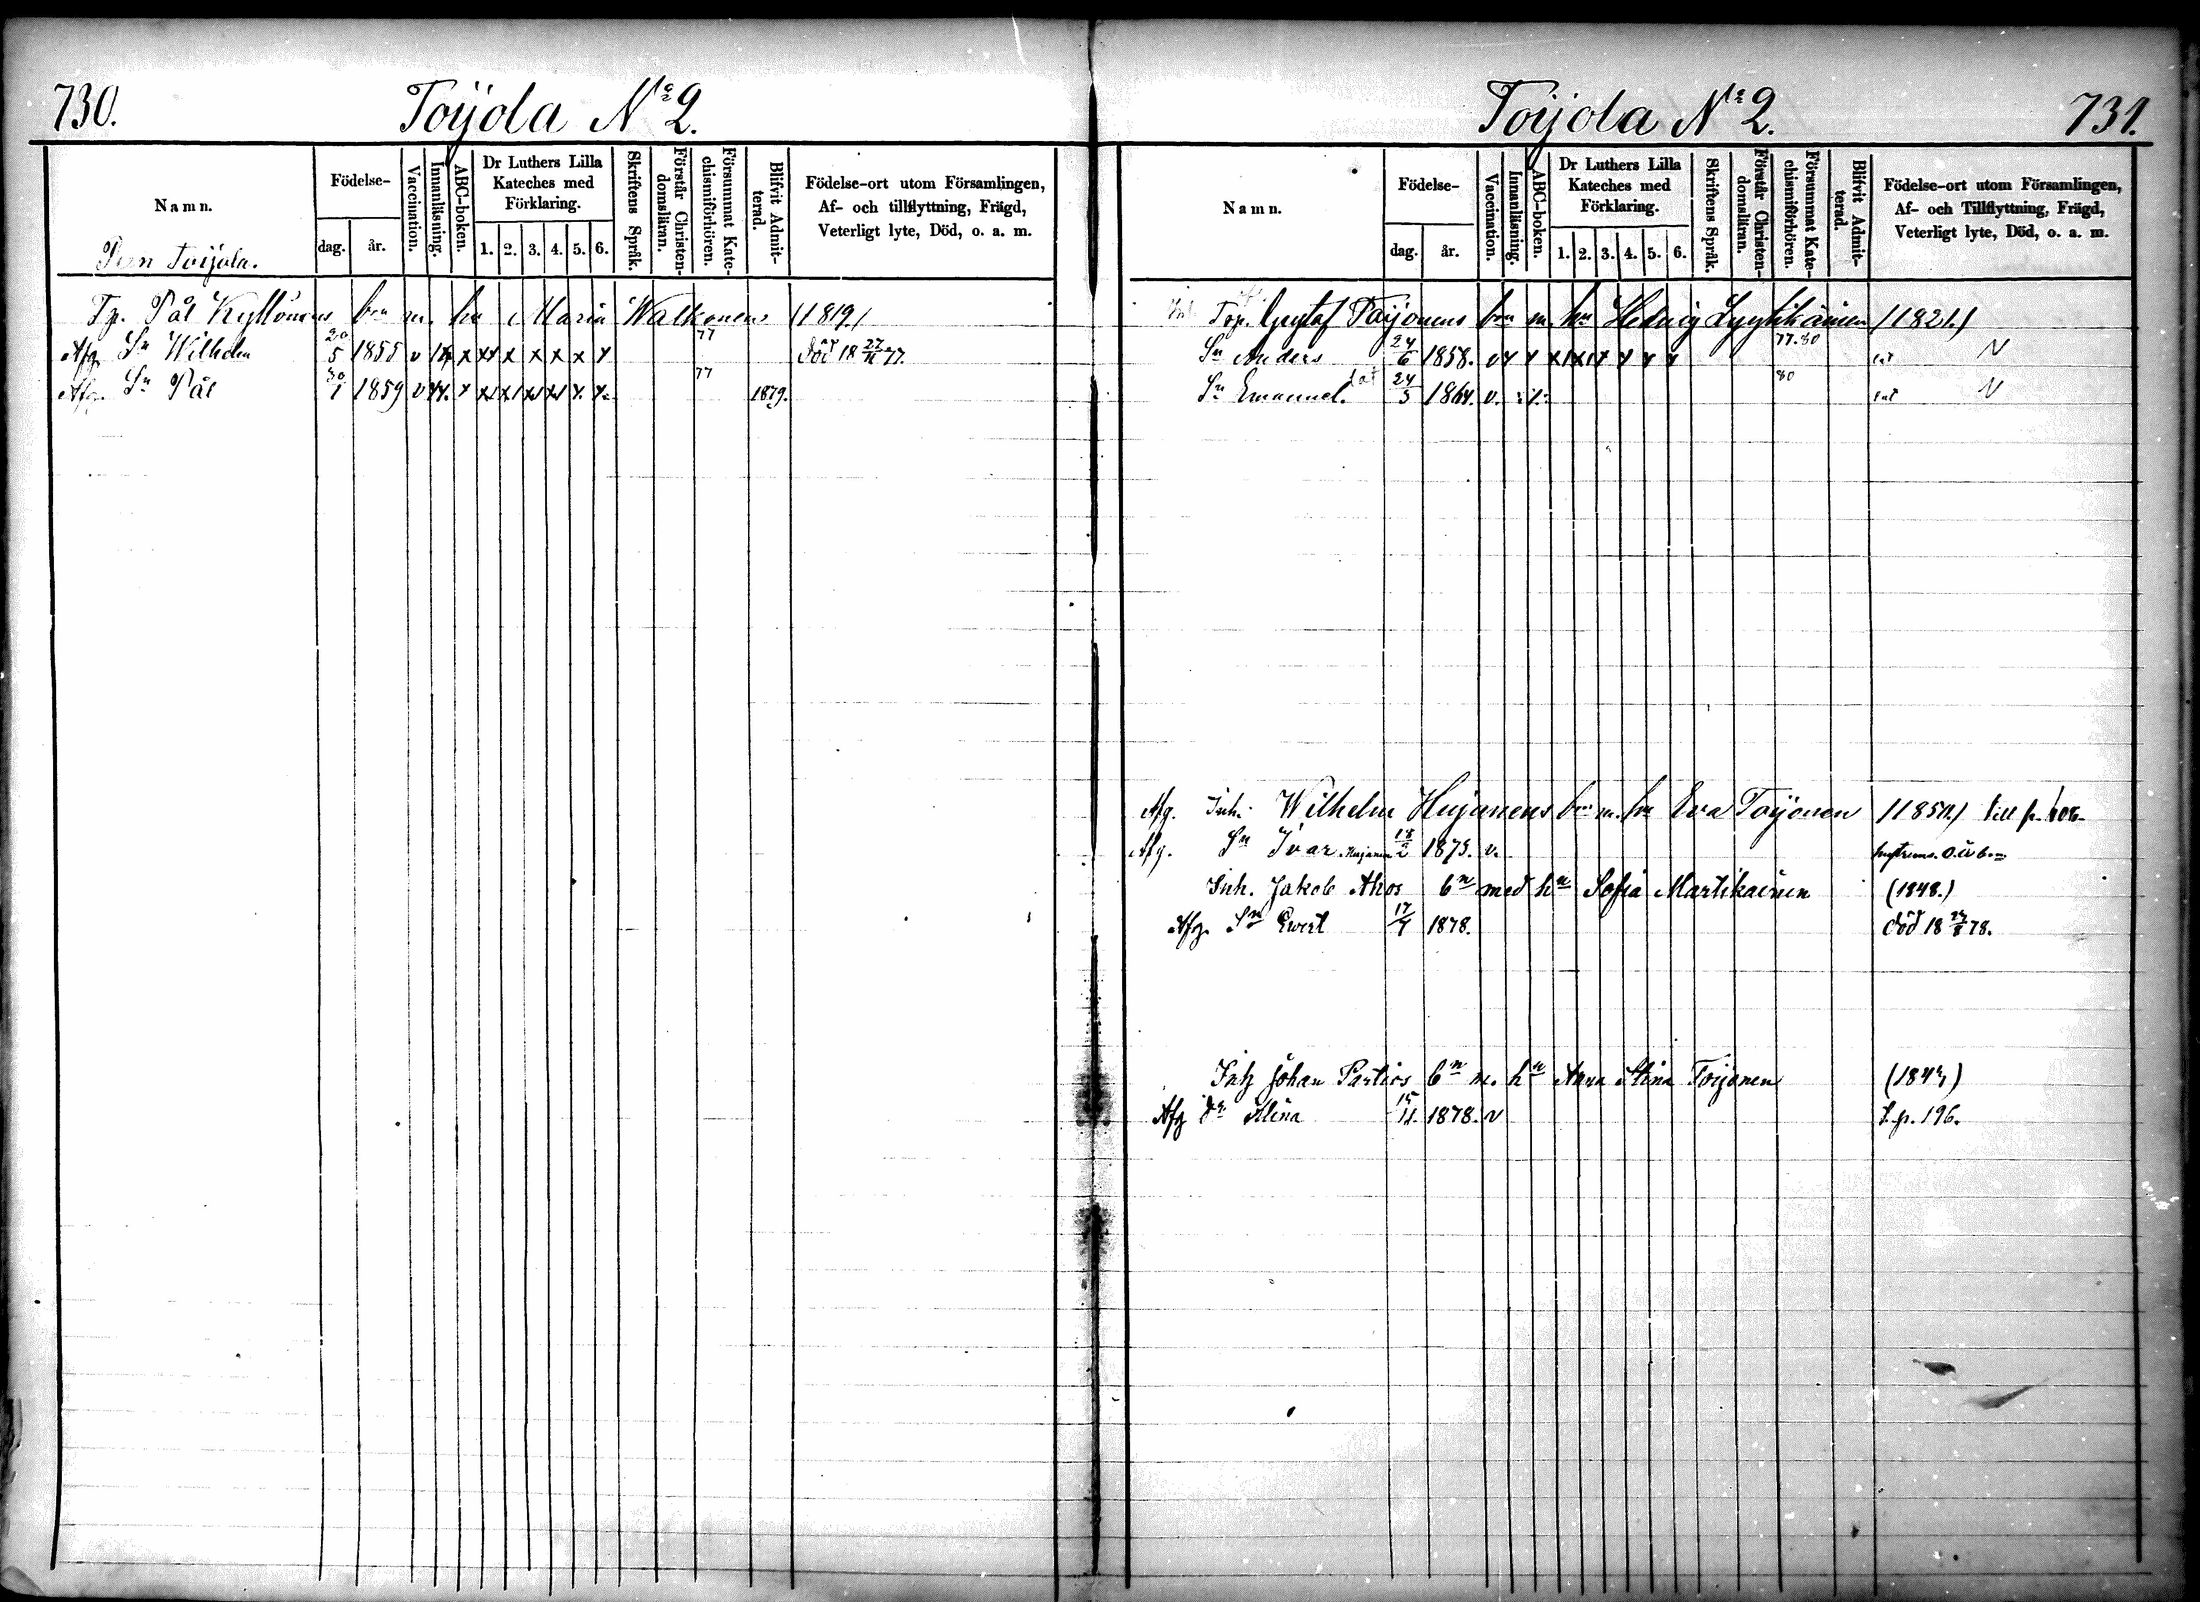 730. Toijola № 2.
Namn.
Födelse-
dag. år.
Vaccination.
Innanläsning.
ABC-boken.
Dr Luthers Lilla
Kateches med
Förklaring.
1. 2. 3. 4. 5. 6.
Skriftens Språk.
Förstår Christen-
domsläran.
Försummat Kate-
chismiförhören.
Blifvit Admit-
terad.
Födelse-ort utom Församlingen,
Af- och tillflyttning, Frägd,
Veterligt lyte, Död, o. a. m.
Toijola.
Pål Kyllönens brn m. hu Maria Walkonen (1819.)
Afg. Sn Wilhelm 20/5 1855 v x x x x x x x 77 död 18 27/11 77.
Afg. Sn Pål 30/1 1859 v x x x x x x x 77 1879.
Toijola № 2. 731.
Namn.
Födelse-
dag. år.
Vaccination.
Innanläsning.
ABC-boken.
Dr Luthers Lilla
Kateches med
Förklaring.
1. 2. 3. 4. 5. 6.
Skriftens Språk.
Förstår Christen-
domsläran.
Försummat Kate-
chismiförhören.
Blifvit Admit-
terad.
Födelse-ort utom Församlingen,
Af- och Tillflyttning, Frägd,
Veterligt lyte, Död, o. a. m.
Top. Gustaf Toijonens brn m. hu Hedvig Lyytikäinen (1821.)
Sn Anders 24/6 1858. v x x x x x x x x 77.80 N
Sn Emanuel. 24/3 1864. v. 80 N
Afg. Inh. Wilhelm Hujanens brn m. hu Eva Toijonen till p.
Afg. Sn Ivar Hujanen 18/2 1875. v.
Inh. Jakob Ahos bn med hn Sofia Martikainen (1848.)
Afg. Sn Evert 17/7 1878. död 18 78.
Inh Johan Parties bn m. hn Anna Stina Toijonen
Afg dr Alina 15/11. 1878. v t. p. 196.